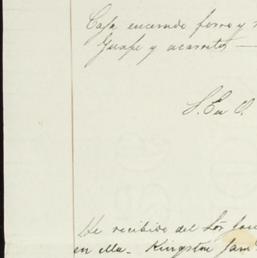 Caja encerado forro y
Guafe y acarretos —
S. E u O.
He recibido del Sor
en ella. Kingston